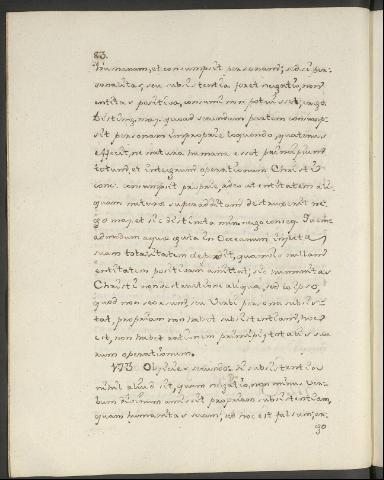 83.
humanam, et consumpsit personam; sed si per-
sonalitas, seu subsistentia foret negatio, non
entitas positiva, consumi non potuisset; ergo
Disting. maj. quoad secundam partem consump-
sit personam improprie loquendo, quatenus
effecit, ne natura humana esset principium
totum, et integrum operationum Christi
conc. consumpsit proprie, adeo ut entitatem ali-
quam naturæ superadditam destruxerit ne-
go maj. et sic distincta min. nego conseq.
admodum aquæ gutta in Oceanum injecta
suam totalitatem deperdit, quamvis nullam
entitatem positivam amittat; sic humanitas
Christi non destructione aliqua, sed eo ipso,
quod non seorsum, seu Verbi persona subsis-
tat, propriam non habet subsistentiam, hoc
est, non habet rationem principii totalis sua-
rum operationum.
173 Objicies secundo: si subsistentia
nihil aliud sit, quam negatio, non minus Ver-
bum divinum amisit propriam subsistentiam,
quam humanitas suam; sed hoc est falsum, er-
go